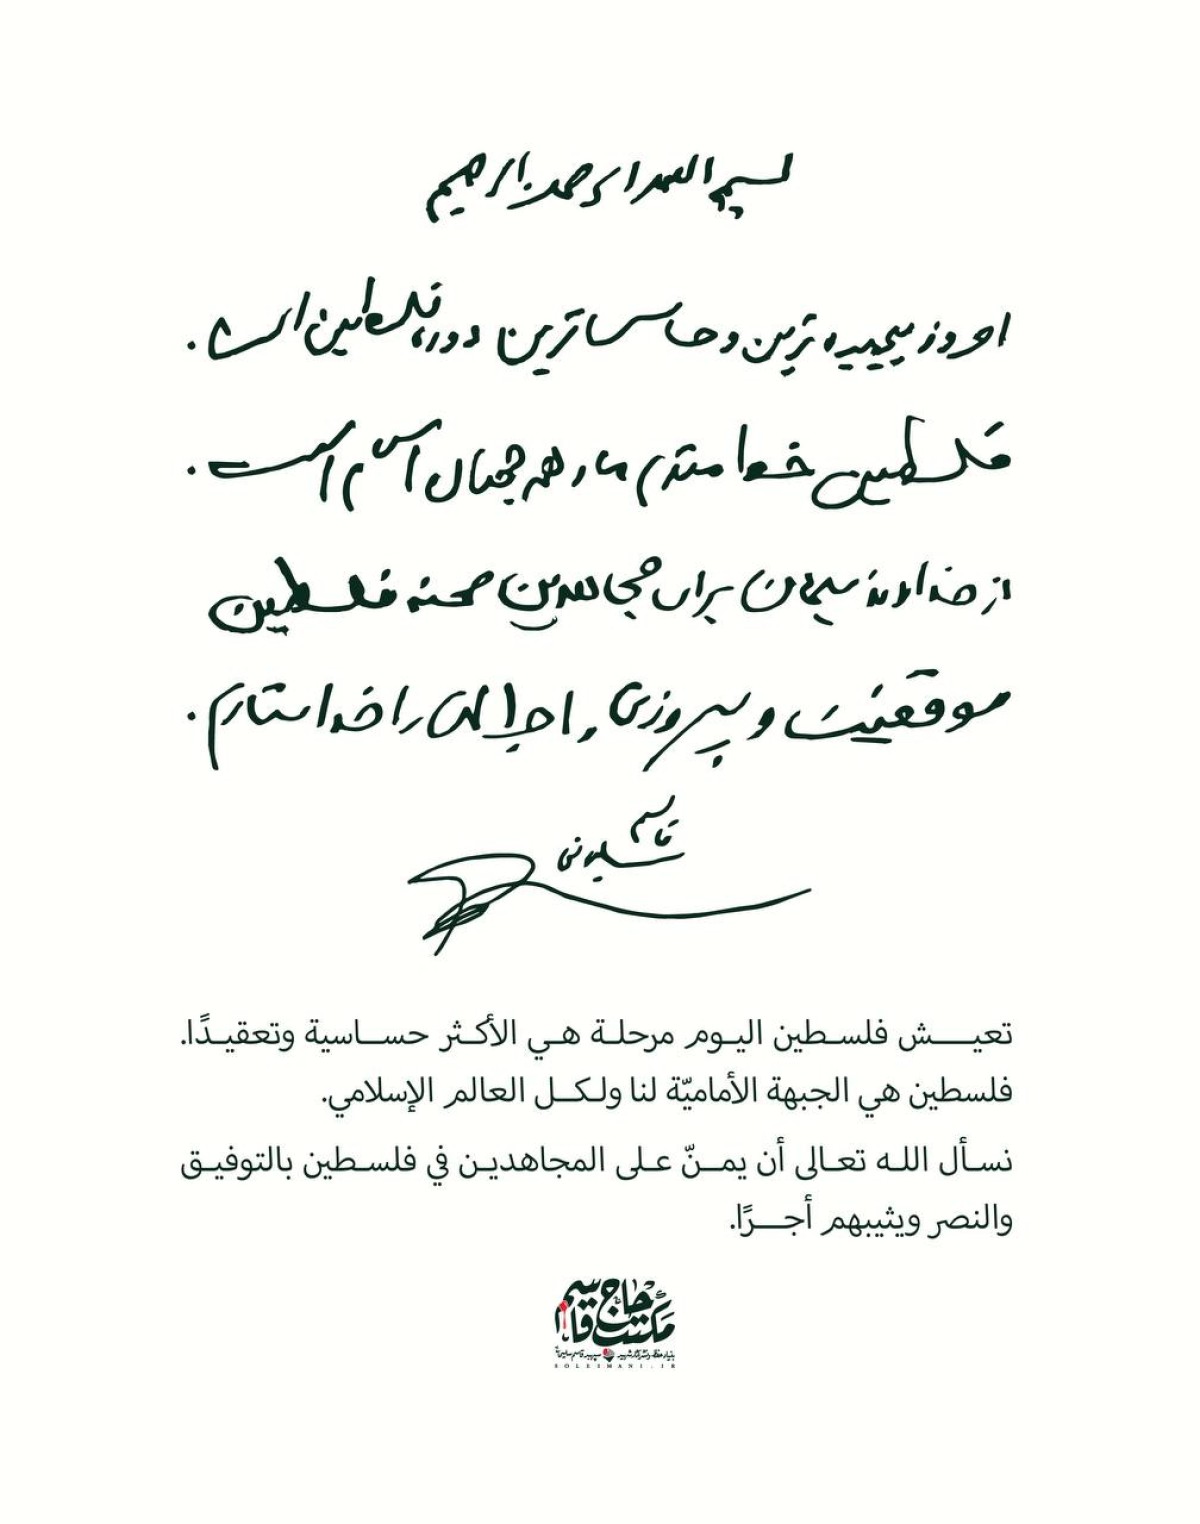 بسم الله الرحمن الرحیم
امروز پیچیده ترین و حساس ترین دوره فلسطین است.
فلسطین خط مقدم ما و همه جهان اسلام است.
از خداوند سبحان برای مجاهدین صحنه فلسطین
موفقیت و پیروزی و اجر الهی را خواستارم.
قاسم
سلیمانی
تعيش فلسطين اليوم مرحلة هي الأكثر حساسية وتعقيدًا.
فلسطين هي الجبهة الأماميّة لنا ولكل العالم الإسلامي.
نسأل الله تعالى أن يمنّ على المجاهدين في فلسطين بالتوفيق
والنصر ويثيبهم أجرًا.
مکتب حاج قاسم
بنیاد حفظ و نشر آثار شهید سپهبد قاسم سلیمانی
SOLEIMANI.IR